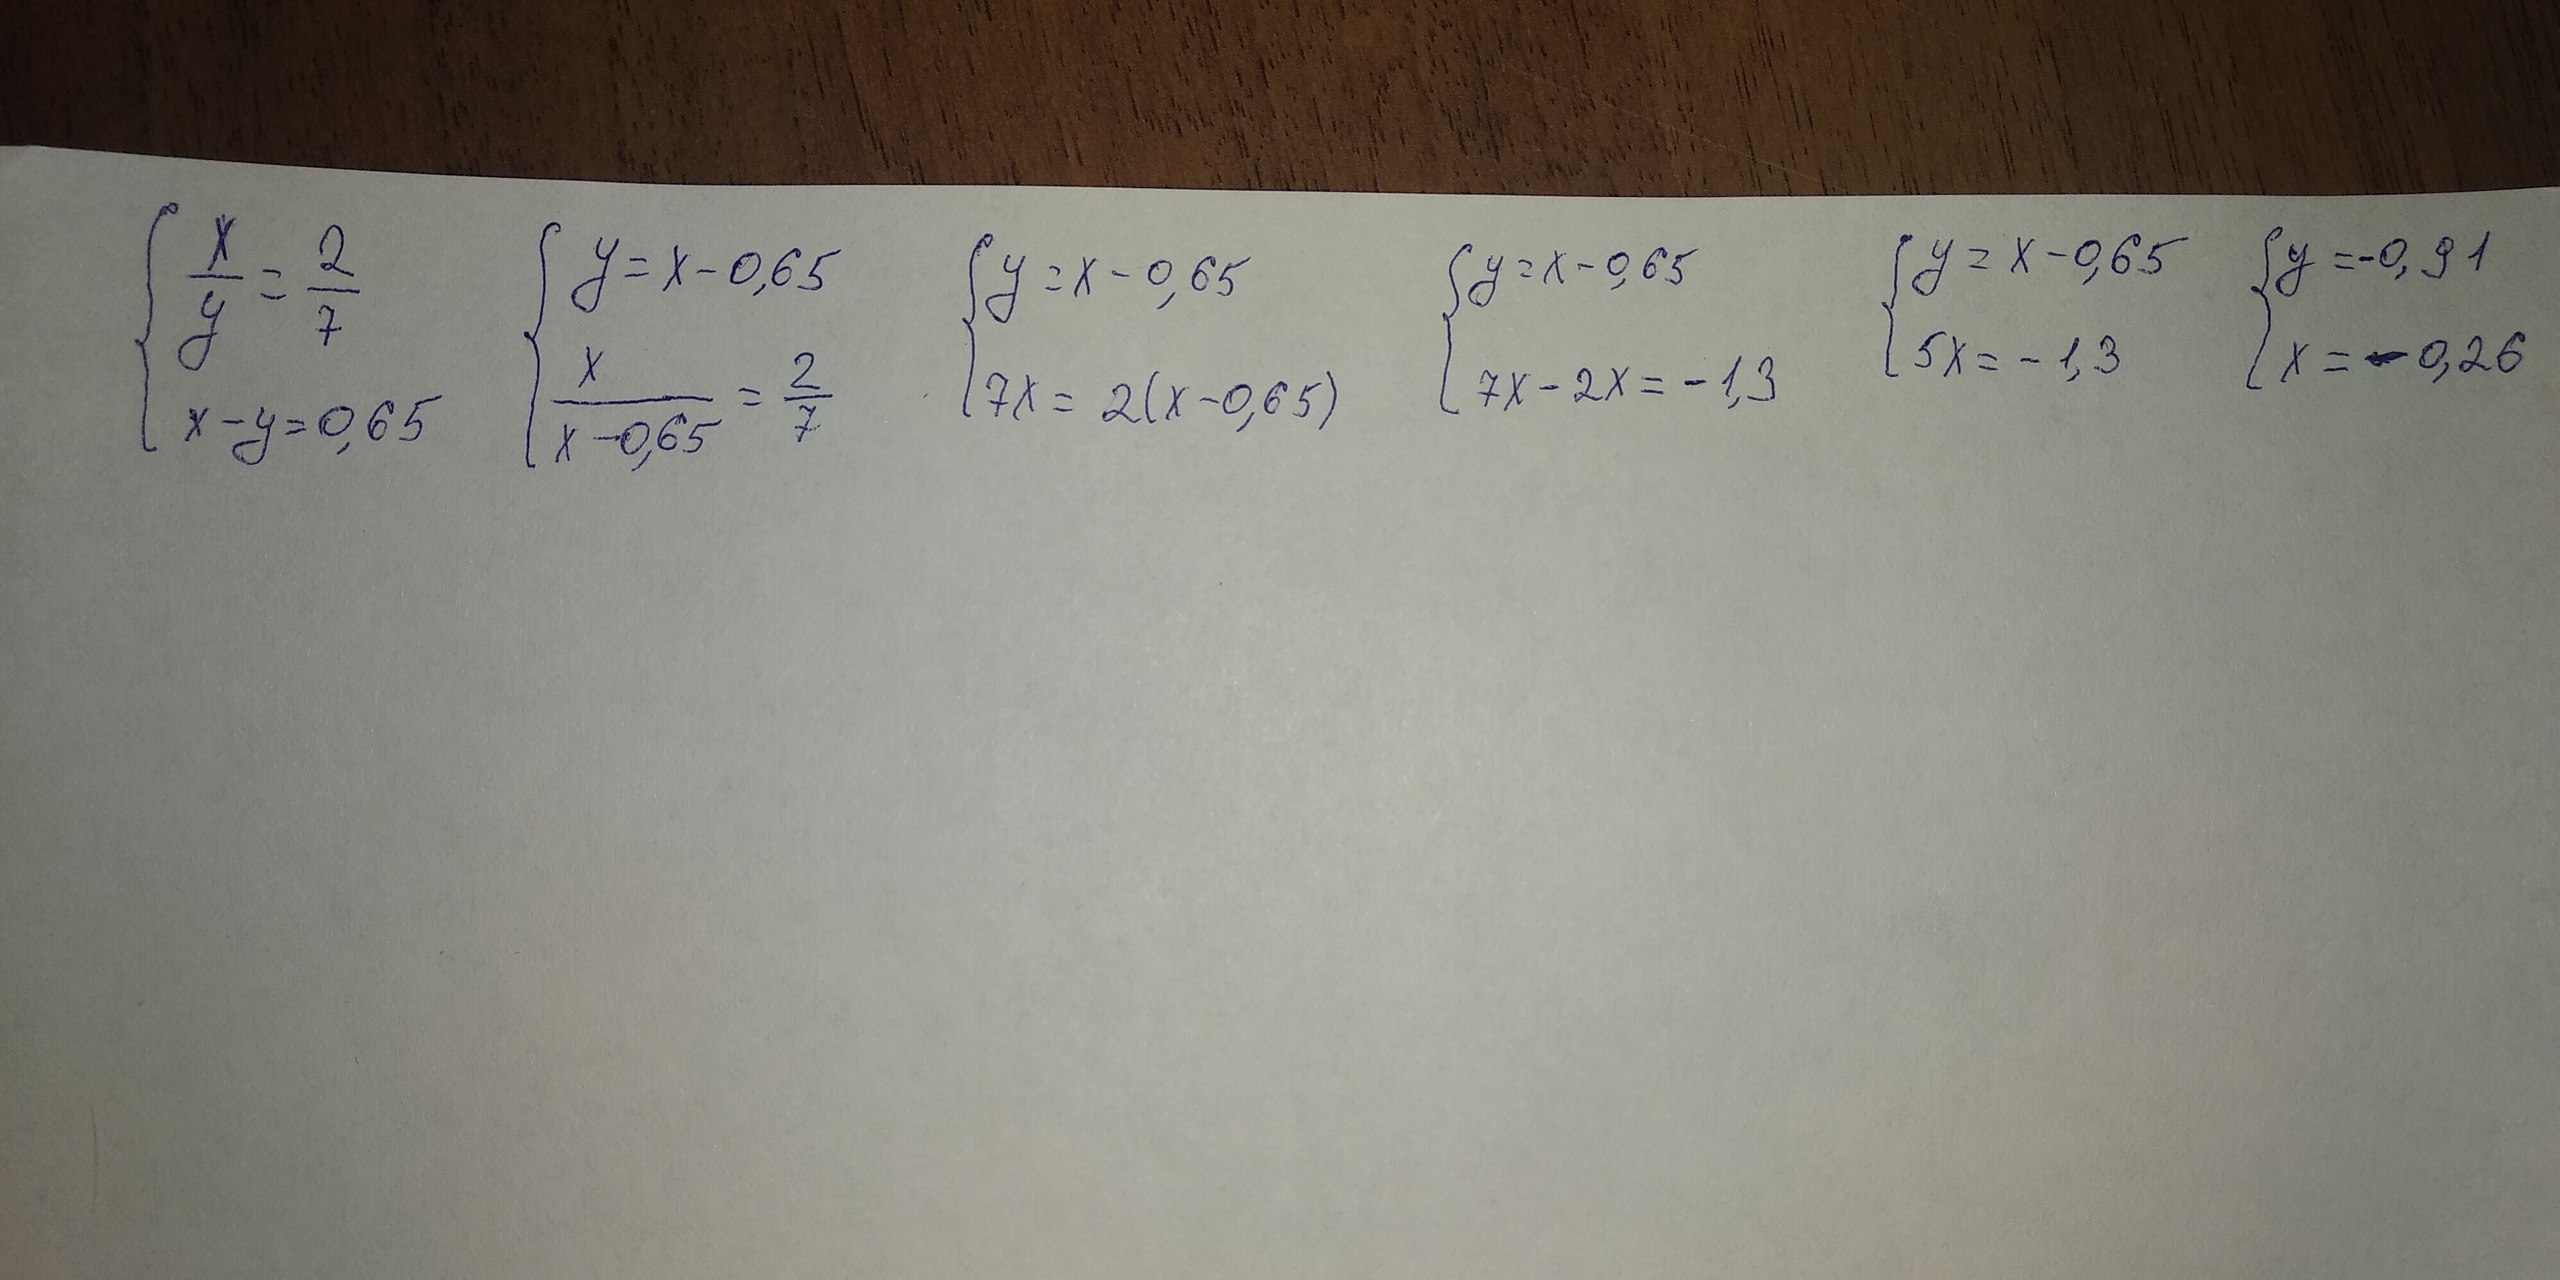 x/y = 2/7
x - y = 0,65
y = x - 0,65
x/(x - 0,65) = 2/7
y = x - 0,65
7x = 2(x - 0,65)
y = x - 0,65
7x - 2x = -1,3
y = x - 0,65
5x = -1,3
y = -0,91
x = -0,26